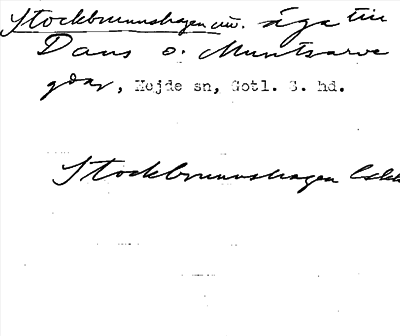 Stockbrunnshagen m. äga till
Dans o. Muntsarve
gdar, Hejde sn, Gotl. S. hd.
Stockbrunnshagen